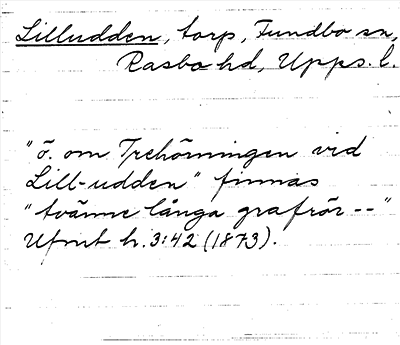 Lilludden, torp, Fundbo sn,
Rasbo hd, Upps. l.
"ö. om Trehörningen vid
Lill-udden" finnas
"tvänne långa grafrör --"
Ufmt h. 3:42 (1873).